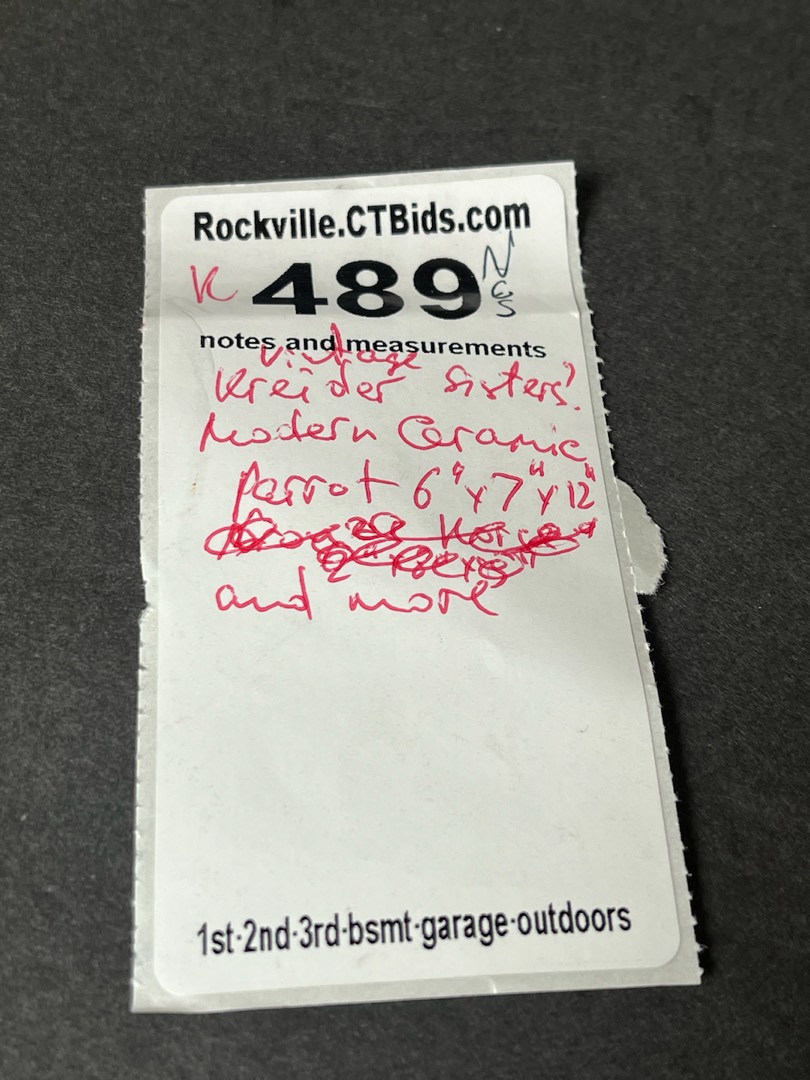 Rockville.CTBids.com
K 489 N
notes and measurements
vintage
Kreider Sisters?
Modern Ceramic
Parrot 6" x 7" x 12"
and more
1st·2nd·3rd·bsmt·garage·outdoors